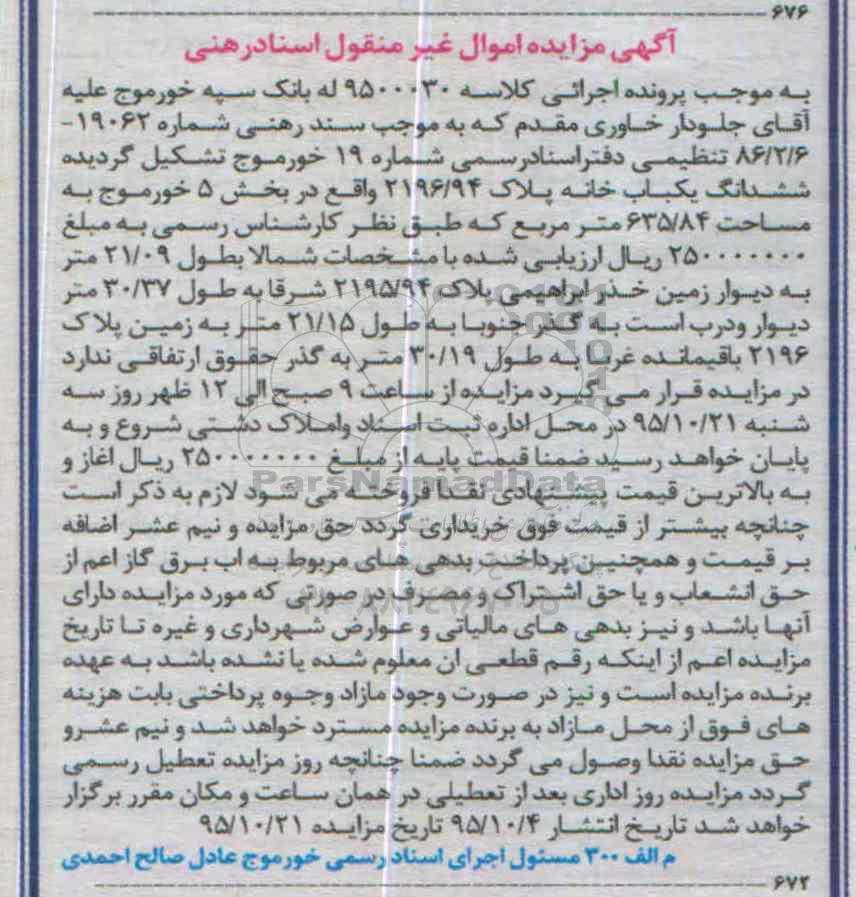 ۶۷۶
آگهی مزایده اموال غیر منقول اسنادرهنی
به موجب پرونده اجرائی کلاسه ۹۵۰۰۰۳۰ له بانک سپه خورموج علیه
آقای جلودار خاوری مقدم که به موجب سند رهنی شماره ۱۹۰۶۲-
۸۶/۲/۶ تنظیمی دفتراسنادرسمی شماره ۱۹ خورموج تشکیل گردیده
ششدانگ یکباب خانه پلاک ۲۱۹۶/۹۴ واقع در بخش ۵ خورموج به
مساحت ۶۳۵/۸۴ متر مربع که طبق نظر کارشناس رسمی به مبلغ
۲۵۰۰۰۰۰۰۰۰ ریال ارزیابی شده با مشخصات شمالا بطول ۲۱/۰۹ متر
به دیوار زمین خذر ابراهیمی پلاک ۲۱۹۵/۹۴ شرقا به طول ۳۰/۳۷ متر
دیوار ودرب است به گذر جنوبا به طول ۲۱/۱۵ متر به زمین پلاک
۲۱۹۶ باقیمانده غربا به طول ۳۰/۱۹ متر به گذر حقوق ارتفاقی ندارد
در مزایده قرار می گیرد مزایده از ساعت ۹ صبح الی ۱۲ ظهر روز سه
شنبه ۹۵/۱۰/۲۱ در محل اداره ثبت اسناد واملاک دشتی شروع و به
پایان خواهد رسید ضمنا قیمت پایه از مبلغ ۲۵۰۰۰۰۰۰۰۰ ریال اغاز و
ParsNamadData
به بالاترین قیمت پیشنهادی نقدا فروخته می شود لازم به ذکر است
چنانچه بیشتر از قیمت فوق خریداری گردد حق مزایده و نیم عشر اضافه
بر قیمت و همچنین پرداخت بدهی های مربوط به اب برق گاز اعم از
حق انشعاب و یا حق اشتراک و مصرف در صورتی که مورد مزایده دارای
آنها باشد و نیز بدهی های مالیاتی و عوارض شهرداری و غیره تا تاریخ
مزایده اعم از اینکه رقم قطعی ان معلوم شده یا نشده باشد به عهده
برنده مزایده است و نیز در صورت وجود مازاد وجوه پرداختی بابت هزینه
های فوق از محل مازاد به برنده مزایده مسترد خواهد شد و نیم عشر و
حق مزایده نقدا وصول می گردد ضمنا چنانچه روز مزایده تعطیل رسمی
گردد مزایده روز اداری بعد از تعطیلی در همان ساعت و مکان مقرر برگزار
خواهد شد تاریخ انتشار ۹۵/۱۰/۴ تاریخ مزایده ۹۵/۱۰/۲۱
م الف ۳۰۰ مسئول اجرای اسناد رسمی خورموج عادل صالح احمدی
۶۷۲